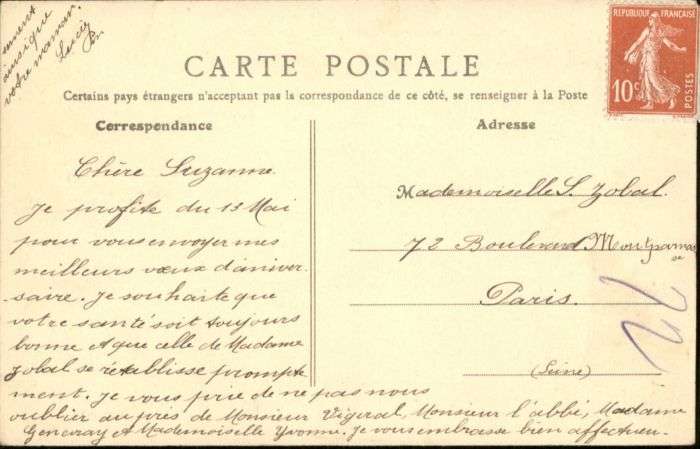 REPUBLIQUE FRANÇAISE
10c
POSTES
CARTE POSTALE
Certains pays étrangers n'acceptant pas la correspondance de ce côté, se renseigner à la Poste
Correspondance
Chère Suzanne.
Je profite du 13 Mai
pour vous envoyer mes
meilleurs vœux d'anniver
-saire. Je souhaite que
votre santé soit toujours
bonne et que celle de Madame
Zobal se rétablisse prompte
ment. Je vous prie de ne pas nous
oublier auprès de Monsieur Vigeral, Monsieur l'abbé, Madame
et Mademoiselle Yvonne. Je vous embrasse bien affectueu-
sement
ainsi que
votre maman.
Adresse
Mademoiselle S. Zobal.
72 Boulevard Montparnas
se
Paris.
(Seine)
22